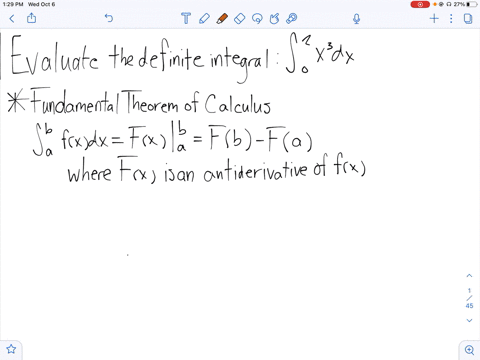 1:29 PM Wed Oct 6
27%
Evaluate the definite integral: ∫₀² x³dx
* Fundamental Theorem of Calculus
∫ₐᵇ f(x)dx = F(x)|ₐᵇ = F(b) - F(a)
where F(x) is an antiderivative of f(x)
1
/
45